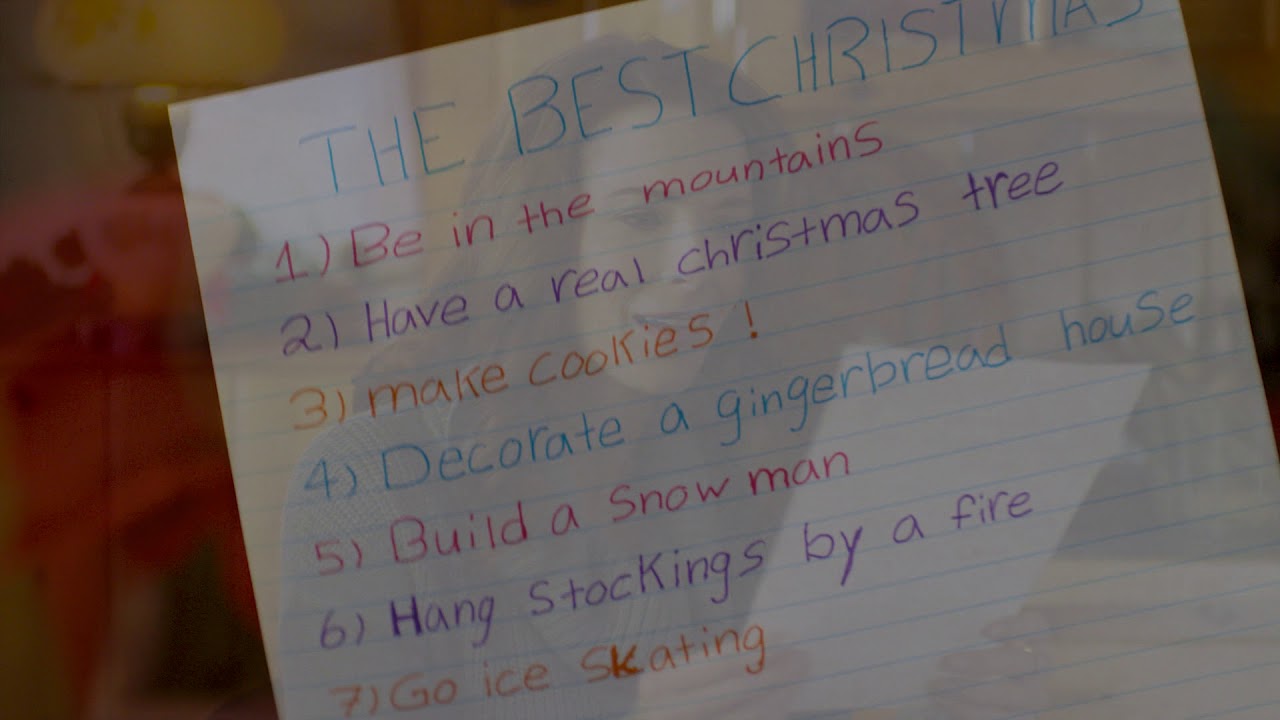 THE BEST CHRISTMAS
1) Be in the mountains
2) Have a real christmas tree
3) make cookies!
4) Decorate a gingerbread house
5) Build a Snowman
6) Hang Stockings by a fire
7) Go ice skating